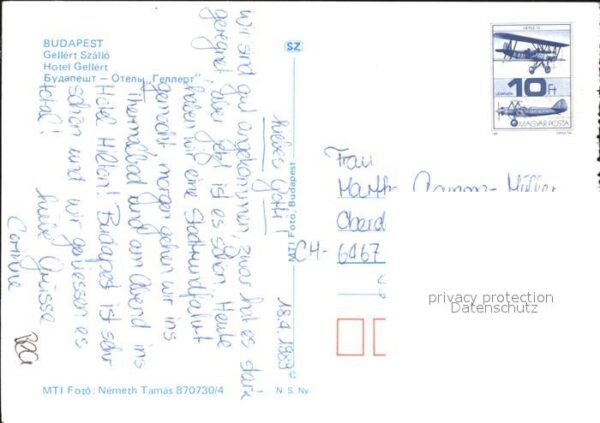 BUDAPEST
Gellért Szálló
Hotel Gellért
Будапешт — Отель „Геллерт"
SZ
10 Ft
MAGYAR POSTA
18.4.1989
Liebes Gotti!
Wir sind gut angekommen, zwar hat es stark
geregnet, aber jetzt ist es schön. Heute
haben wir eine Stadtrundfahrt
gemacht, morgen gehen wir ins
Thermalbad und am Abend ins
Hotel Hilton! Budapest ist sehr
schön und wir geniessen es
total!
Liebe Grüsse
Corinne
Frau
CH- 6467
MTI Fotó, Budapest
privacy protection
Datenschutz
MTI Fotó: Németh Tamás 870730/4
N. S. Ny.